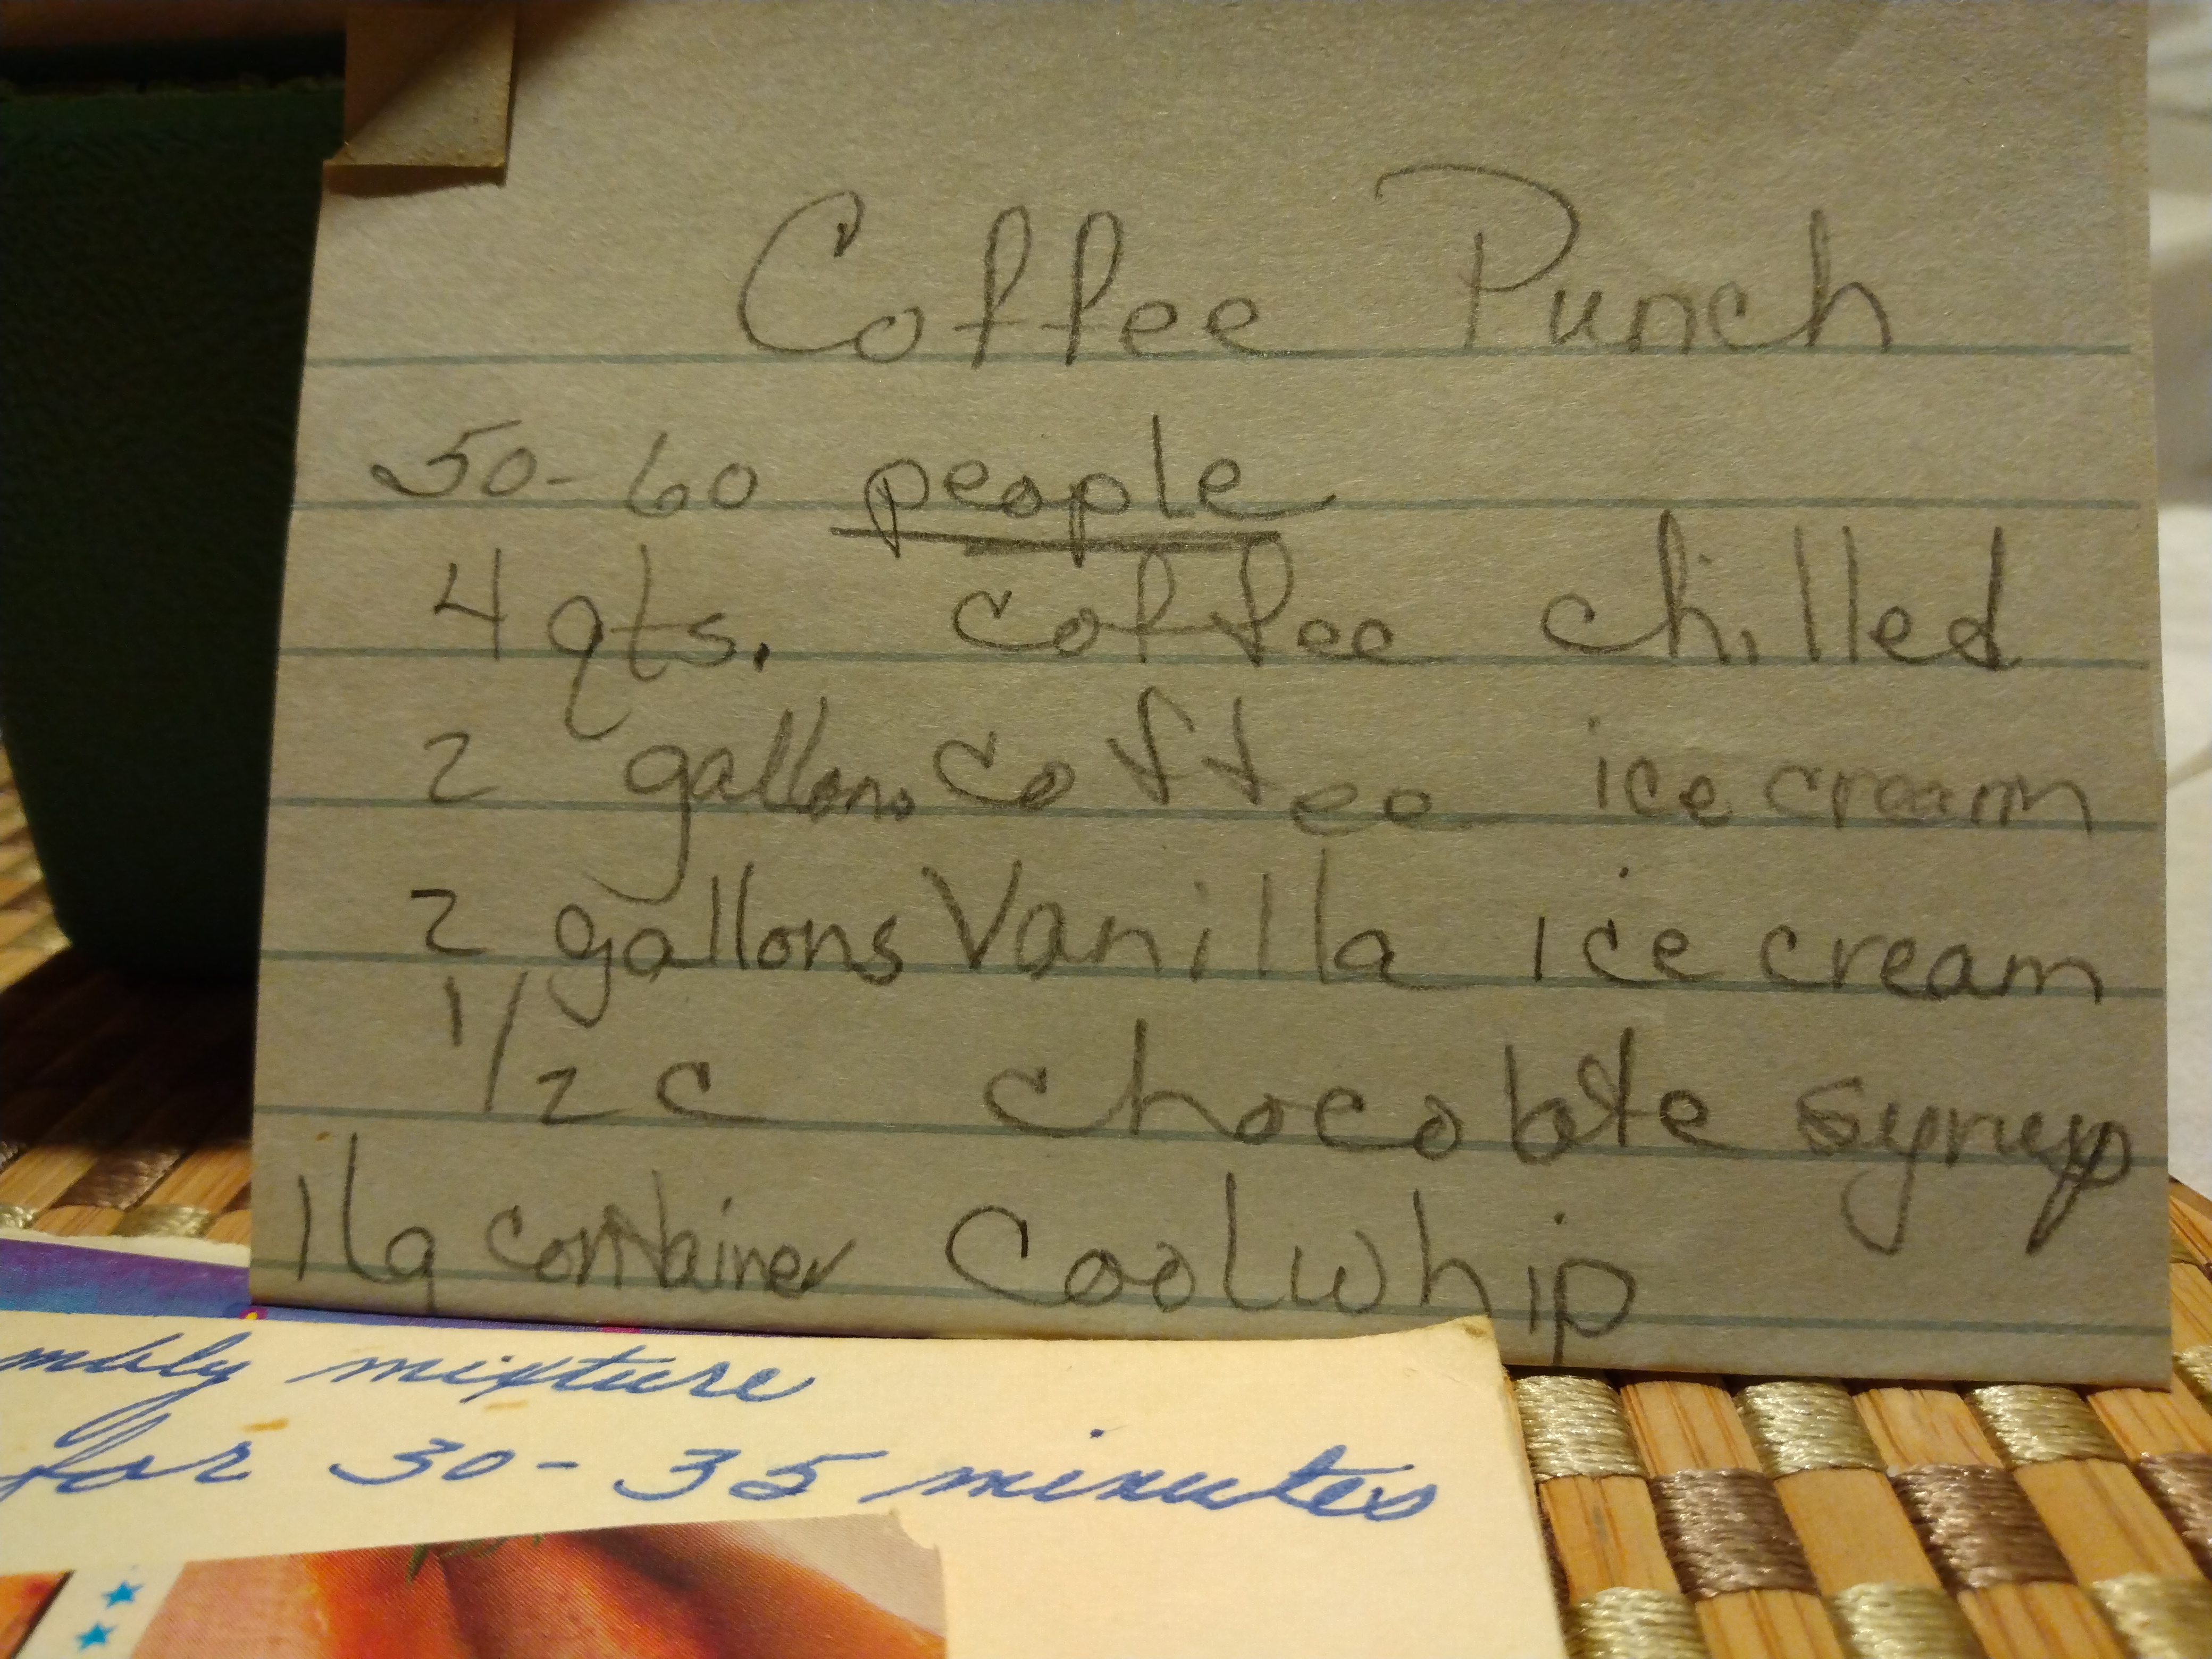 Coffee Punch
50-60 people
4 qts. coffee chilled
2 gallons coffee ice cream
2 gallons Vanilla ice cream
1/2 c chocolate syrup
1 lg container Coolwhip
mbly mixture
for 30-35 minutes